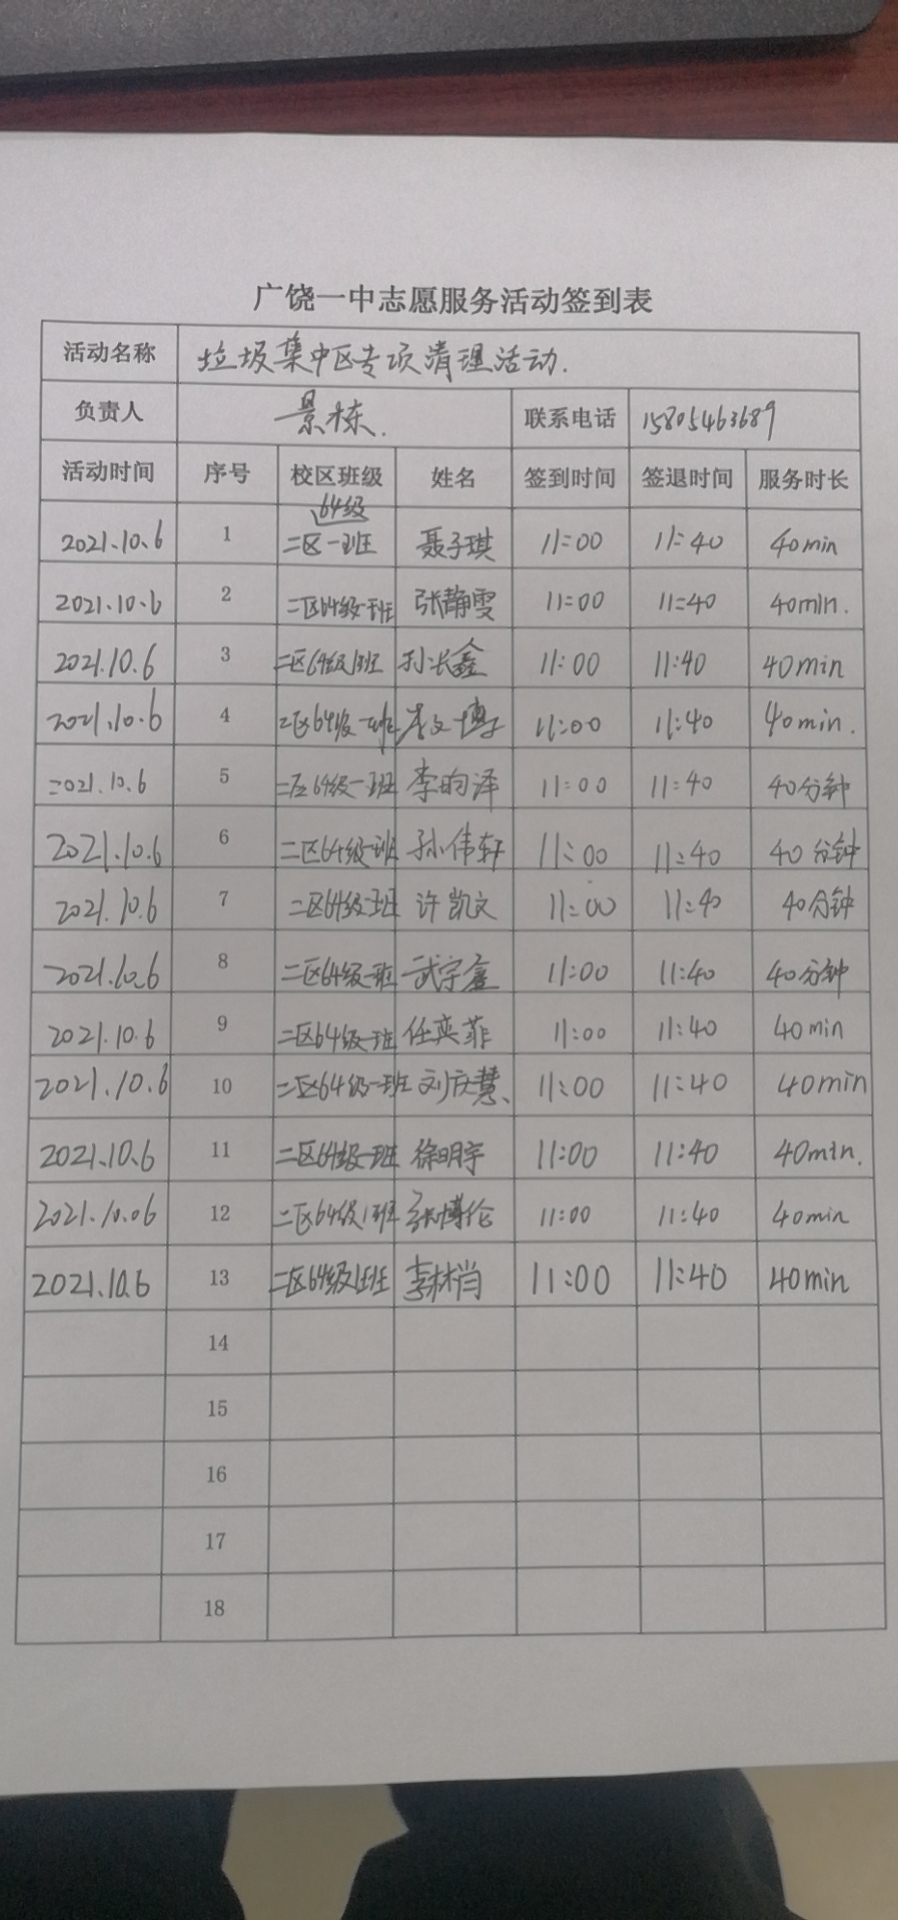 广饶一中志愿服务活动签到表
活动名称 垃圾集中区专项清理活动.
负责人 景栋. 联系电话 15805463689
活动时间 序号 校区班级 姓名 签到时间 签退时间 服务时长
64级
2021.10.6 1 二区一班 聂子琪 11:00 11:40 40min
2021.10.6 2 二区64级一班 张静雯 11:00 11:40 40min.
2021.10.6 3 二区64级1班 孙长鑫 11:00 11:40 40min
2021.10.6 4 二区64级一班 文博 11:00 11:40 40min.
2021.10.6 5 二区64级一班 李昀泽 11:00 11:40 40分钟
2021.10.6 6 二区64级一班 孙伟轩 11:00 11:40 40分钟
2021.10.6 7 二区64级一班 许凯文 11:00 11:40 40分钟
2021.10.6 8 二区64级一班 武宇鑫 11:00 11:40 40分钟
2021.10.6 9 二区64级一班 任奕菲 11:00 11:40 40min
2021.10.6 10 二区64级一班 刘庆慧 11:00 11:40 40min
2021.10.6 11 二区64级一班 徐明宇 11:00 11:40 40min.
2021.10.06 12 二区64级1班 张博伦 11:00 11:40 40min
2021.10.6 13 二区64级1班 李林 11:00 11:40 40min
14
15
16
17
18